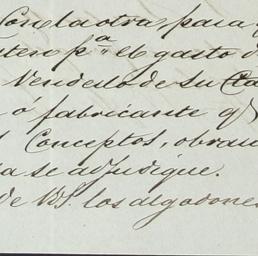 Con la otra para
pª el gasto
Venderlo de su
ó fabricante q
Conceptos, obran
a se adjudique.
de VS. los algodones